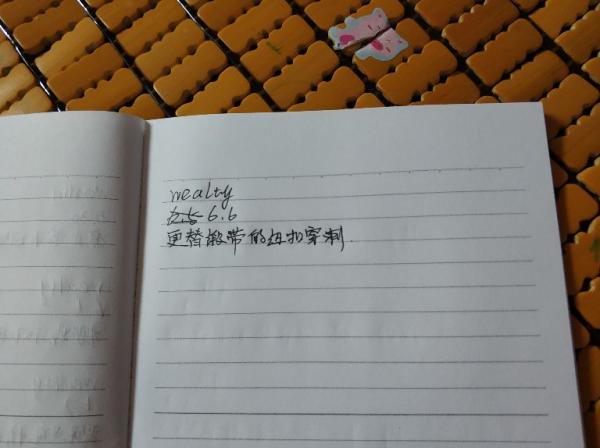 wealty
6.6
更替撤带的纽扣穿刺.